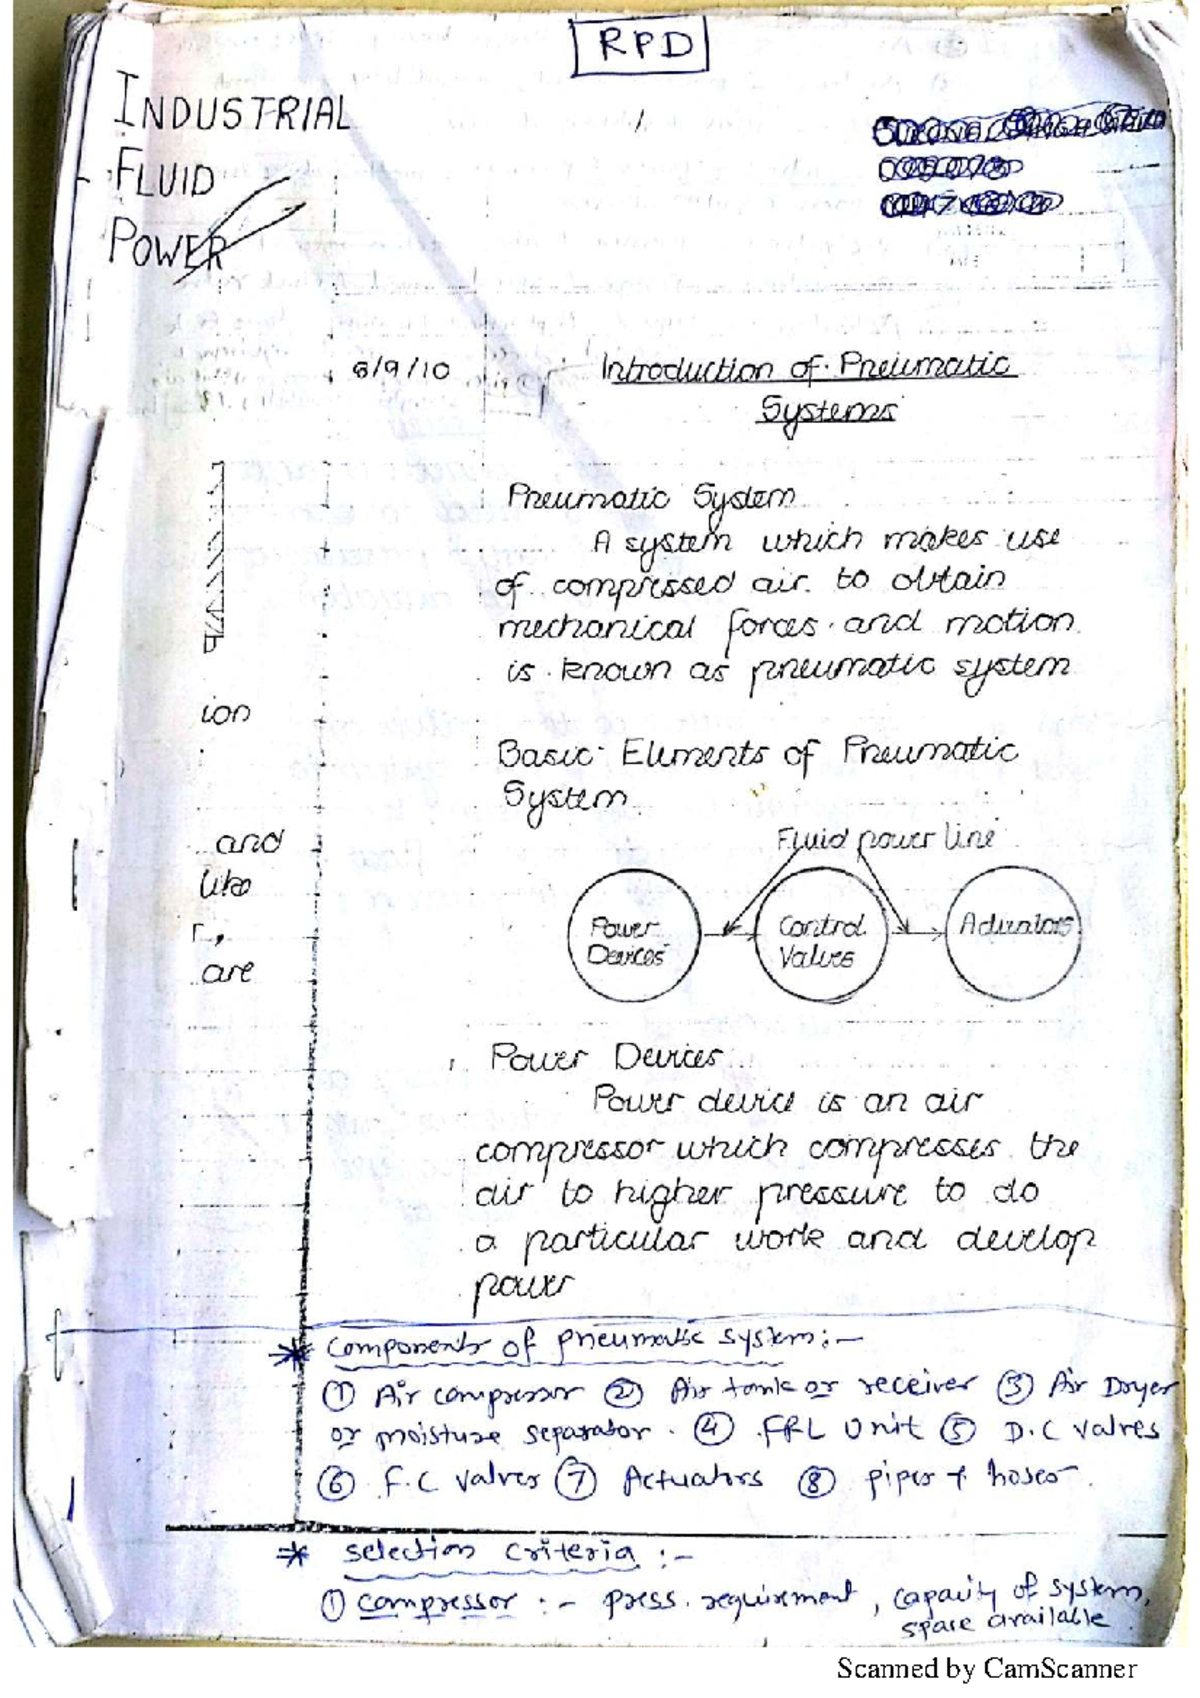 RPD
INDUSTRIAL
FLUID
POWER
6/9/10
Introduction of Pneumatic
Systems
Pneumatic System
A system which makes use
of compressed air to obtain
mechanical forces and motion
is known as pneumatic system
ion
Basic Elements of Pneumatic
System
and
like
r,
are
Fluid power line
Power
Devices
Control
Valves
Actuators
Power Devices
Power device is an air
compressor which compresses the
air to higher pressure to do
a particular work and develop
power
* Components of pneumatic system:-
① Air compressor ② Air tank or receiver ③ Air Dryer
or moisture separator. ④ FRL Unit ⑤ D.C valves
⑥ F.C valves ⑦ Actuators ⑧ pipes + hoses.
* selection criteria :-
① compressor :- press. requirement, capacity of system,
space available
Scanned by CamScanner